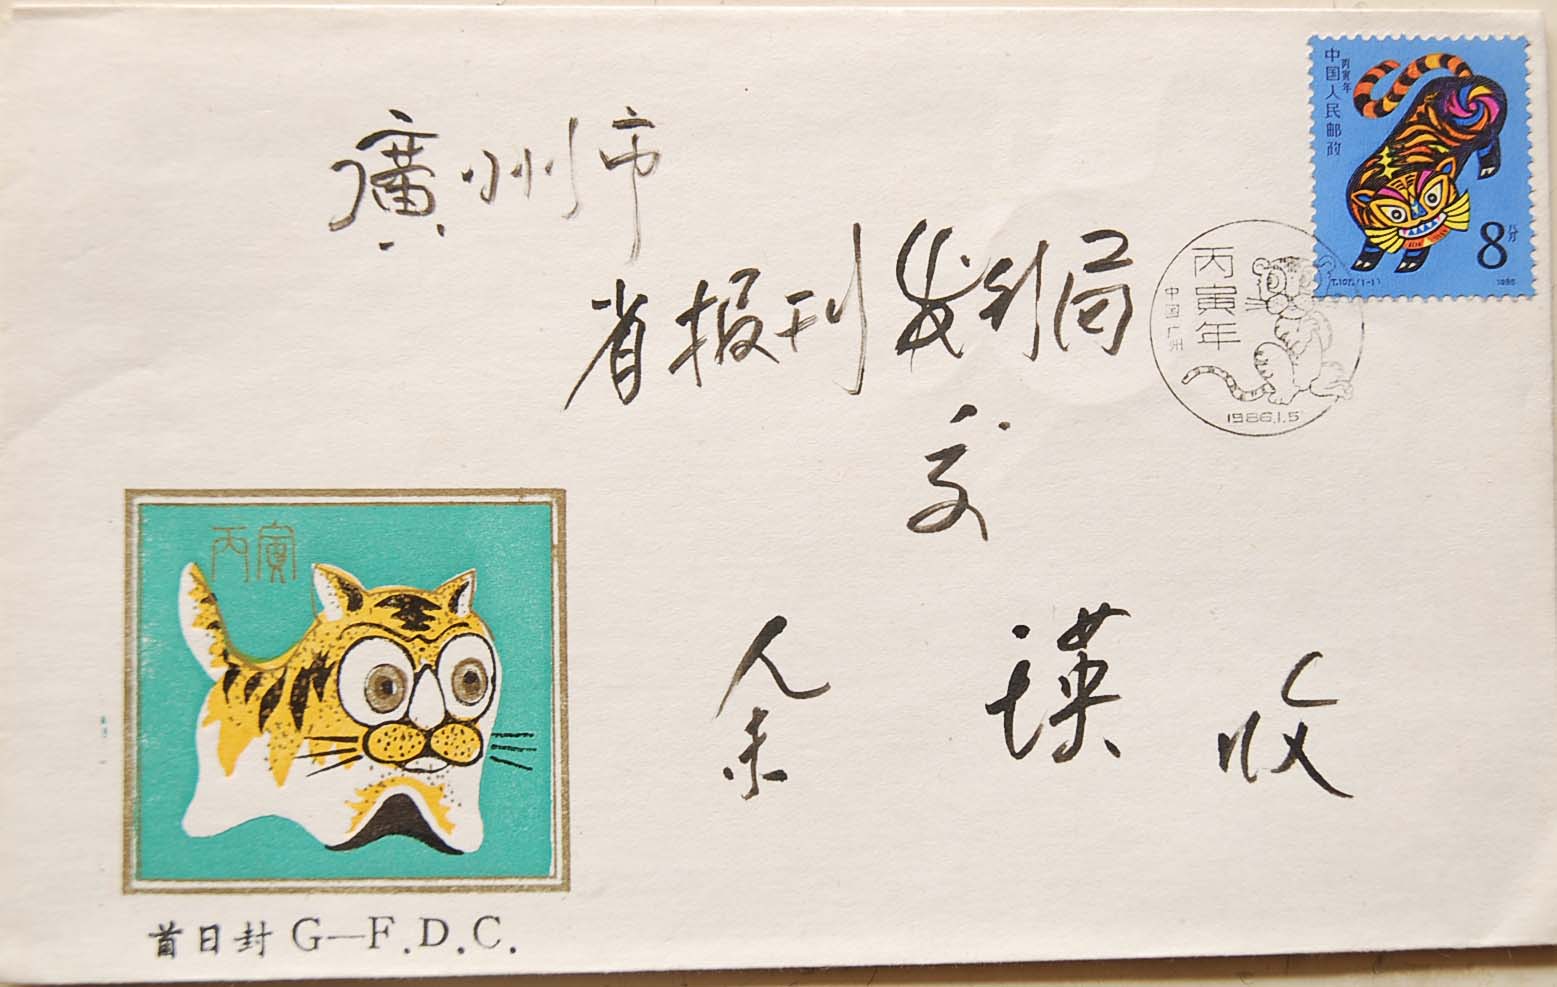 中国人民邮政
丙寅年
8分
T.107.(1-1)
1986
廣州市
省报刊发行局
交
余瑛收
丙寅年
中国广州
1986.1.5
丙寅
首日封 G—F.D.C.